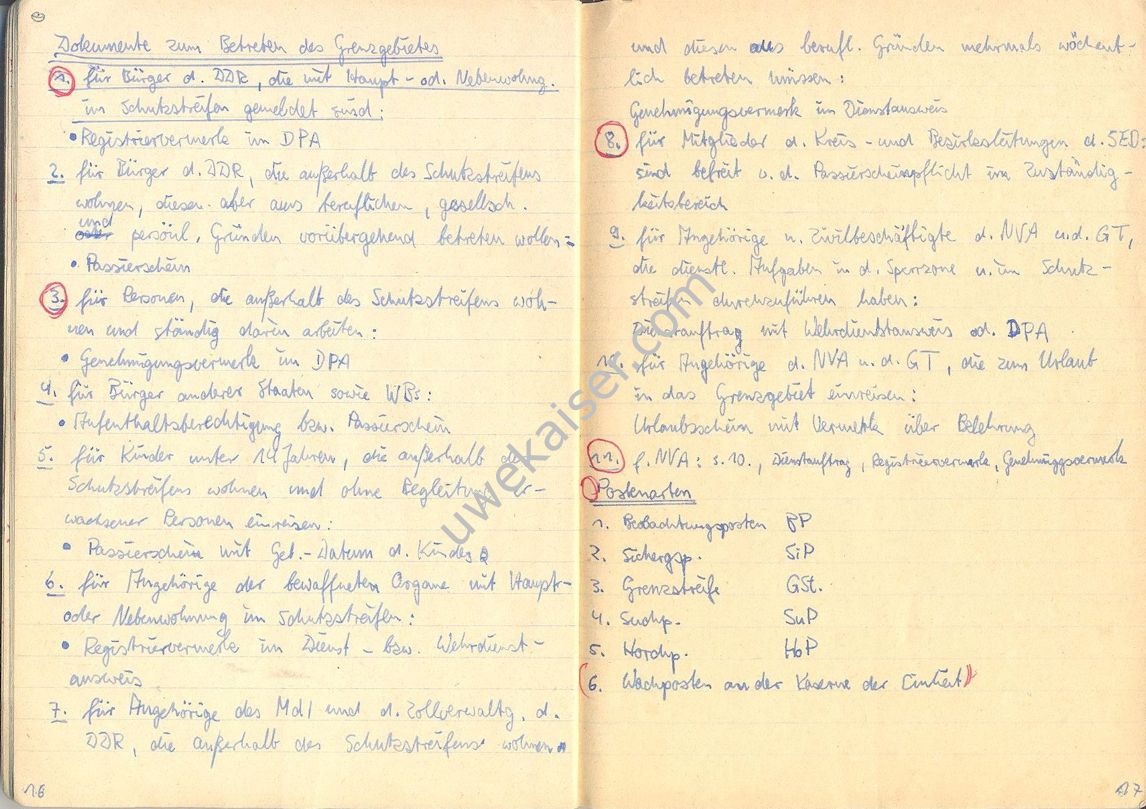 Dokumente zum Betreten des Grenzgebietes
1. für Bürger d. DDR, die mit Haupt- od. Nebenwohng.
im Schutzstreifen gemeldet sind:
• Registriervermerk im DPA
2. für Bürger d. DDR, die außerhalb des Schutzstreifens
wohnen, diesen aber aus beruflichen, gesellsch.
und
persönl. Gründen vorübergehend betreten wollen:
• Passierschein
3. für Personen, die außerhalb des Schutzstreifens woh-
nen und ständig darin arbeiten:
• Genehmigungsvermerk im DPA
4. für Bürger anderer Staaten sowie WBs:
• Aufenthaltsberechtigung bzw. Passierschein
5. für Kinder unter 14 Jahren, die außerhalb des
Schutzstreifens wohnen und ohne Begleitung er-
wachsener Personen einreisen:
• Passierschein mit Geb.-Datum d. Kindes
6. für Angehörige der bewaffneten Organe mit Haupt-
oder Nebenwohnung im Schutzstreifen:
• Registriervermerk im Dienst- bzw. Wehrdienst-
ausweis
7. für Angehörige des MdI und d. Zollverwaltg. d.
DDR, die außerhalb des Schutzstreifens wohnen
16
und diesen aus berufl. Gründen mehrmals wöchent-
lich betreten müssen:
Genehmigungsvermerk im Dienstausweis
8. für Mitglieder d. Kreis- und Bezirksleitungen d. SED:
sind befreit v. d. Passierscheinpflicht im Zuständig-
keitsbereich
9. für Angehörige u. Zivilbeschäftigte d. NVA u. d. GT,
die dienstl. Aufgaben in d. Sperrzone u. im Schutz-
streifen durchzuführen haben:
Dienstauftrag mit Wehrdienstausweis od. DPA
10. für Angehörige d. NVA u. d. GT, die zum Urlaub
in das Grenzgebiet einreisen:
Urlaubsschein mit Vermerk über Belehrung
11. f. NVA: s. 10., Dienstauftrag, Registriervermerk, Genehmiggsvermerk
Postenarten
1. Beobachtungsposten BP
2. Sichergsp. SiP
3. Grenzstreife GSt.
4. Suchp. SuP
5. Horchp. HoP
(6. Wachposten an der Kaserne der Einheit)
17
uwekaiser.com